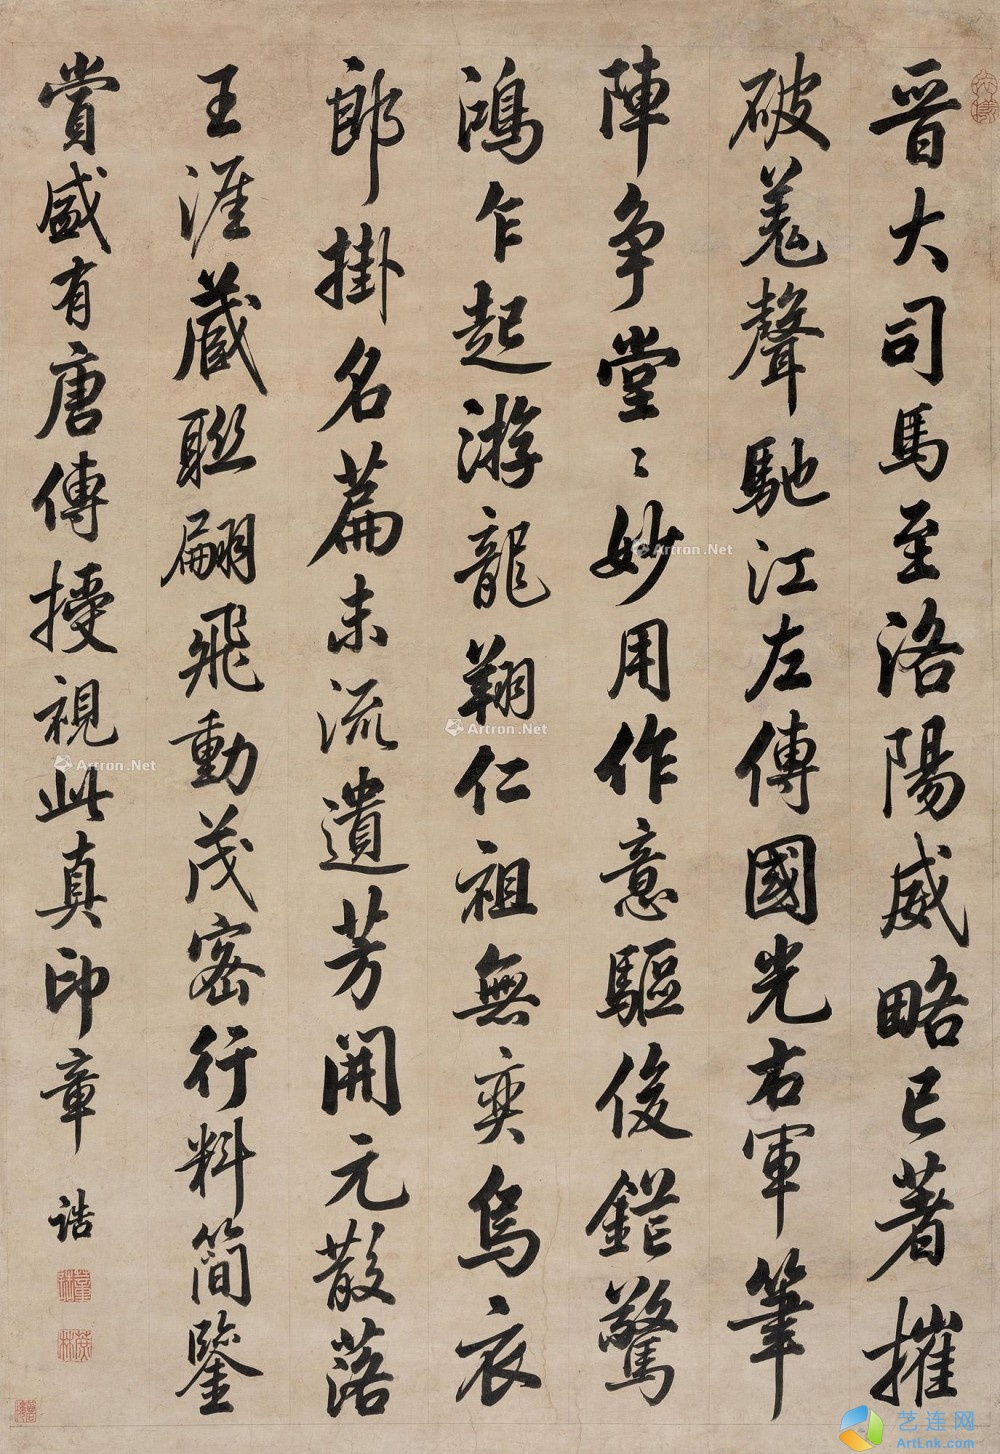 晋大司馬至洛陽威略已著摧
破羗聲馳江左傳國光右軍筆
陣争堂〻妙用作意驅俊鋩驚
鴻乍起游龍翔仁祖無奕烏衣
郎掛名篇末流遺芳開元散落
王涯藏聮翩飛動茂密行料簡鑒
賞盛有唐傳授視此真印章
誥
Artron.Net
Artron.Net
Artron.Net
艺连网
ArtLnk.com